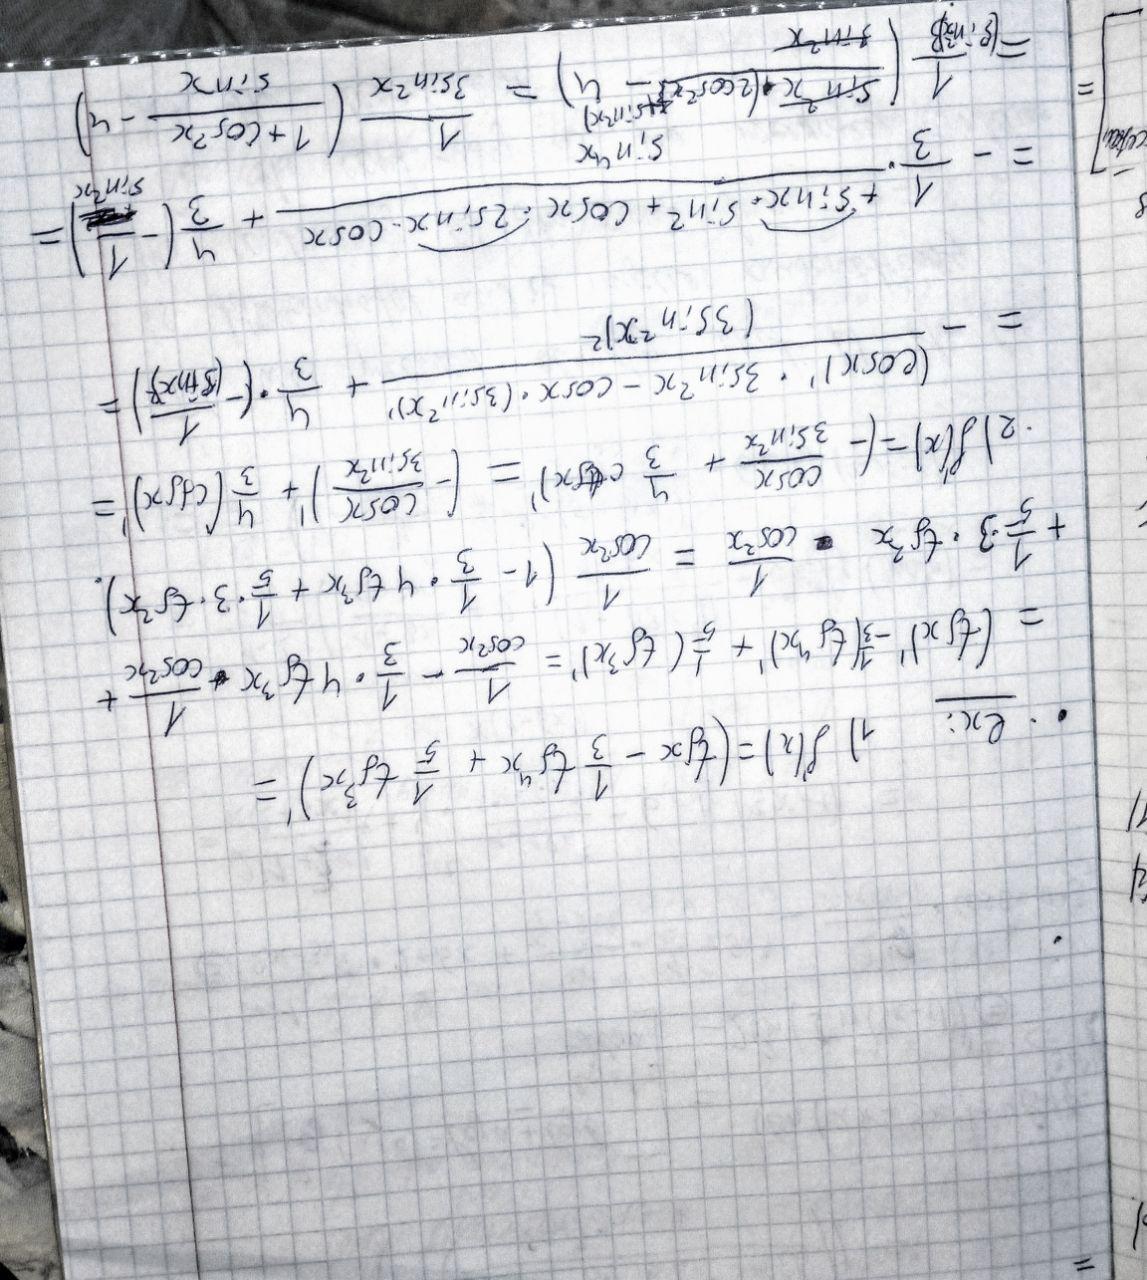 =
ex: 1) f'(x) = (tgx - 1/3 tg⁴x + 1/5 tg³x)' =
= (tgx)' - 1/3(tg⁴x)' + 1/5(tg³x)' = 1/cos²x - 1/3 · 4tg³x · 1/cos²x +
+ 1/5 · 3 · tg²x · 1/cos²x = 1/cos²x (1 - 1/3 · 4tg³x + 1/5 · 3 · tg²x).
2) f'(x) = (- cosx/3sin²x + 4/3 ctgx)' = (- cosx/3sin²x)' + 4/3 (ctgx)' =
= - (cosx)' · 3sin²x - cosx · (3sin²x)'/(3sin²x)² + 4/3 · (- 1/(sinx)²) =
= - 1/3 · +sinx · sin² + cosx · 2sinx · cosx/sin⁴x + 4/3 (- 1/sin²x) =
= 1/(sin²x)3 (sin²x · (2cos²x + sin²x)/sin²x - 4) = 1/3sin²x (1 + cos²x/sinx - 4)